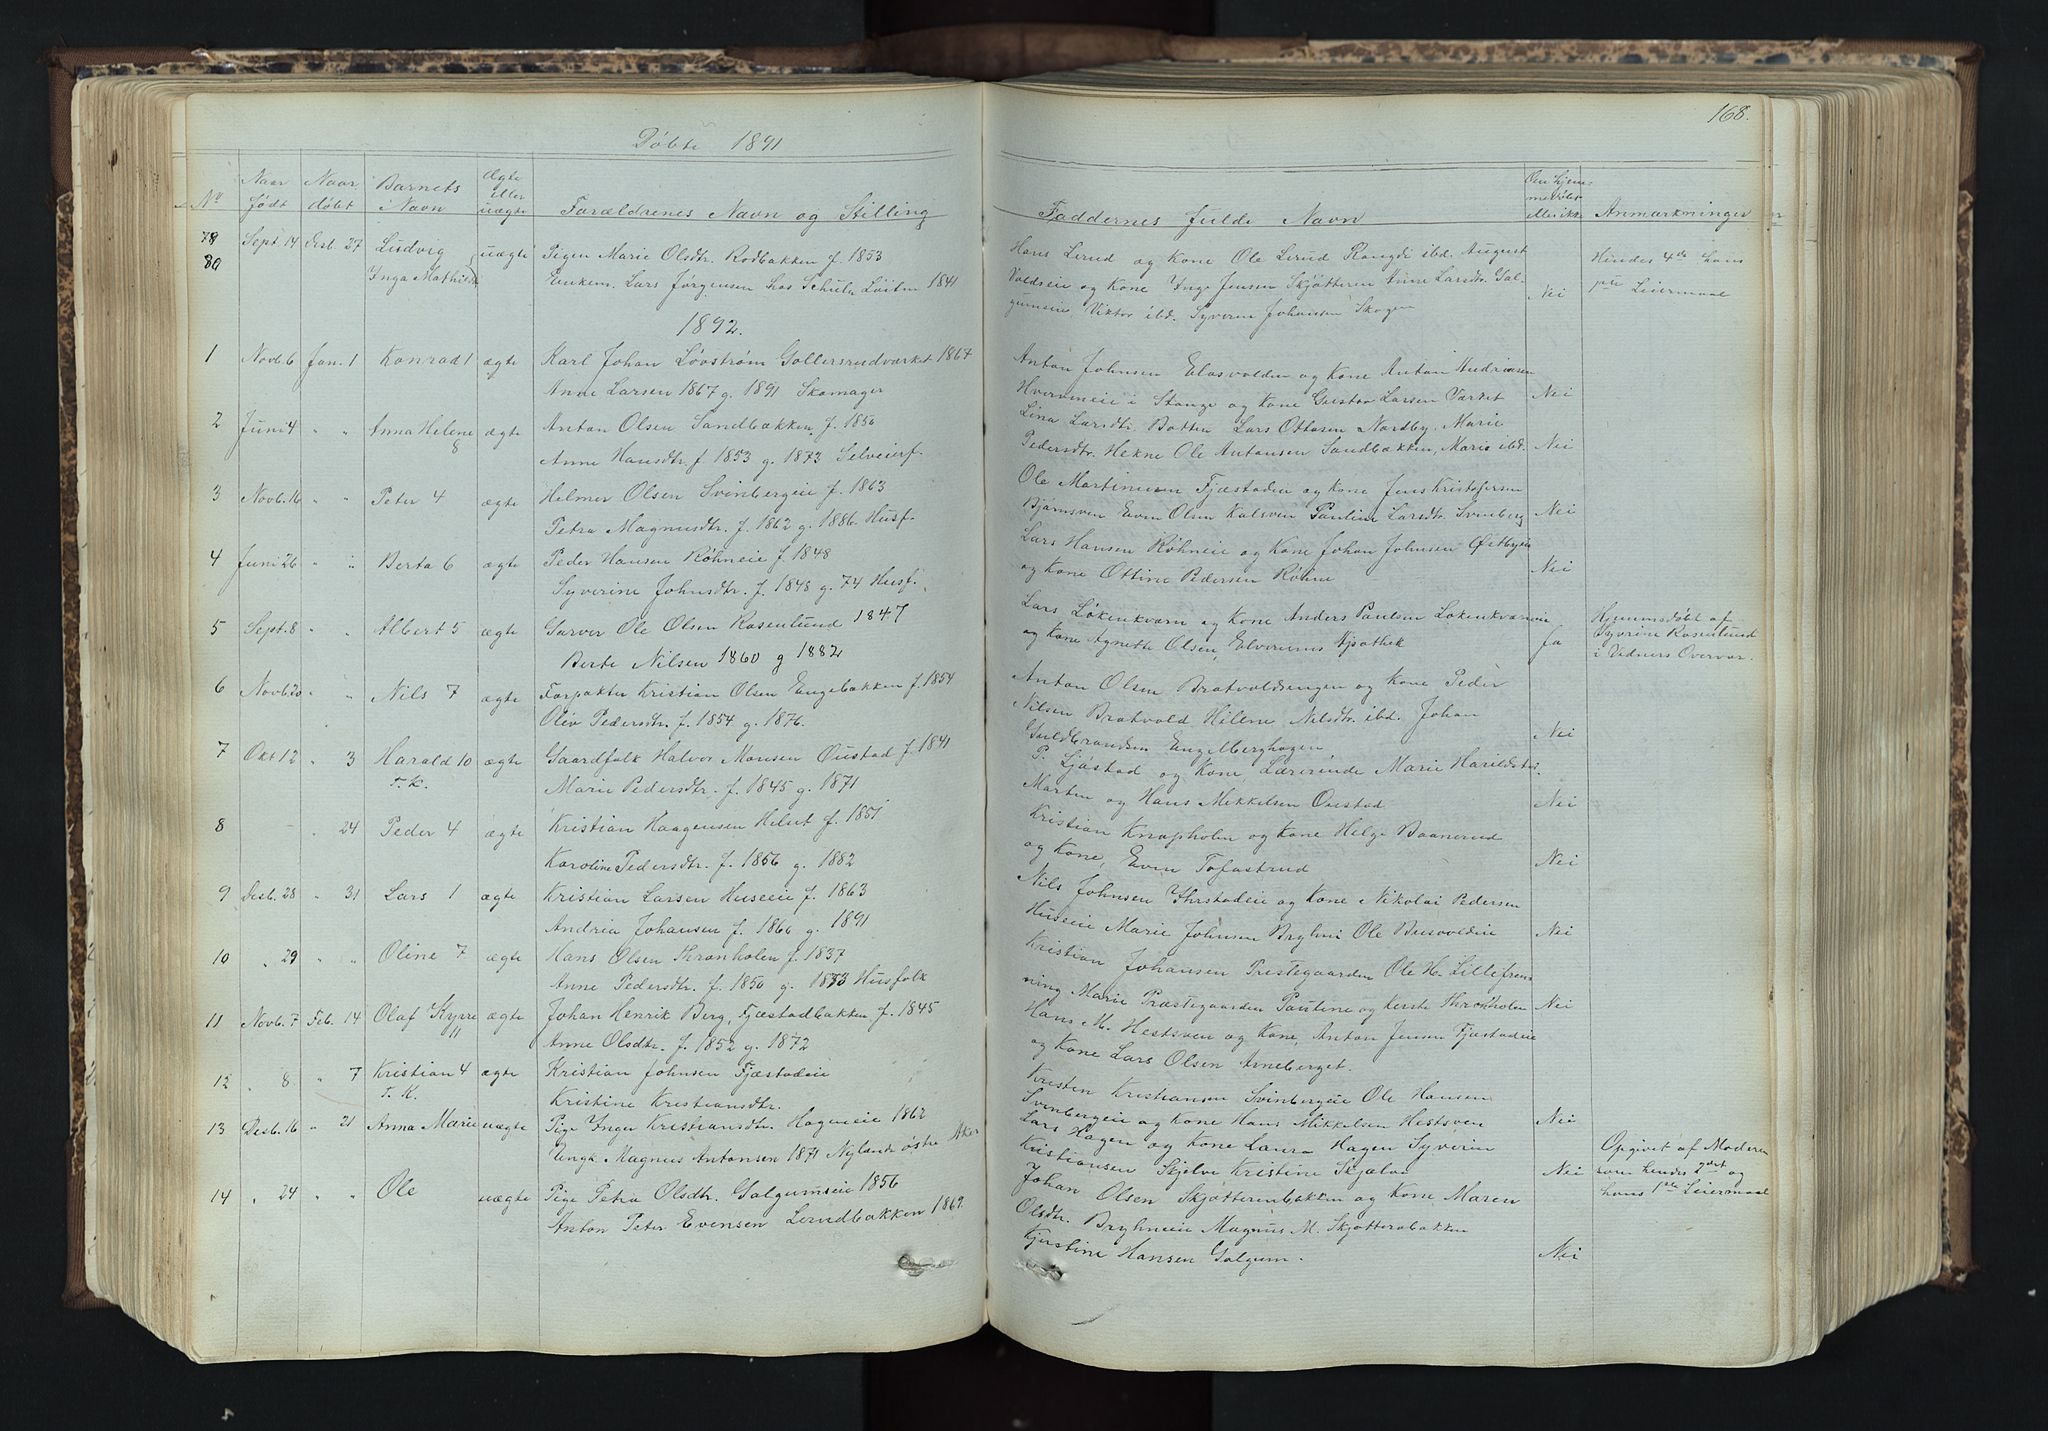 168.
Döbte 1891
No
Naar födt
Naar döbt
Barnets Navn
Ægte eller uægte
Forældrenes Navn og Stilling
Faddernes fulde Navn
Om hjemmedöbt eller ikke
Anmærkninger
79 Sept 14 Desb. 27 Ludvig uægte Pigen Marie Olsdtr. Rodbakken f. 1853
80 Inga Mathilde Enkem. Lars Jørgensen hos Schulz Löiten 1841
Hans Lerud og Kone Ole Lerud Rangdi ibd. August
Voldseie og Kone Inge Jensen Skjötteren Anne Larsdtr. Gal-
gumseie, Viktor ibd. Syverin Johansen Skogen
Nei
Hendes 4de hans
1ste Leiermaal
1892.
1 Novb. 6 Jan. 1 Konrad 1 ægte Karl Johan Lövström Sollersrudværket 1867
Anne Larsen 1867 g. 1891 Skomager
Anton Johnsen Elasvolden og Kone Anton Hendriksen
i Stange og Kone Gustav Larsen Værket Nei
2 Juni 4 " " Anna Helene 8 ægte Anton Olsen Sandbakken f. 1850
Anne Hansdtr. f. 1853 g. 1873 Selveierf.
Lina Larsdtr. Botten Lars Ottosen Nordby, Marie
Pedersdtr. Hekne Ole Antonsen Sandbakken, Marie ibd. Nei
3 Novb. 16 " " Peter 4 ægte Helmer Olsen Svinbergeie f. 1863
Petra Magnusdtr. f. 1862 g. 1886 Husf.
Ole Martinusen Fjæstadeie og Kone Jens Kristofersen
Björnsven Even Olsen Kalsven Pauline Larsdtr. Svinberg Nei
4 Juni 26 " " Berta 6 ægte Peder Hansen Röhneie f. 1848
Syverine Johnsdtr. f. 1848 g. 74 Husf.
Lars Hansen Röhneie og Kone Johan Johnsen Östbyeie
og Kone Ottine Pedersen Röhne Nei
5 Sept. 8 " " Albert 5 ægte Garver Ole Olsen Rosenlund 1847
Berte Nilsen 1860 g 1882
Lars Lökenkvern og Kone Anders Paulsen Lökenkværneie
og Kone Agnethe Olsen, Elverums Apothek Ja
Hjemmedöbt af
Syverine Rosenlund
i Vidners Overvær.
6 Novb. 20 " " Nils 7 ægte Forpakter Kristian Olsen Engebakken f. 1854
Oliv Pedersdtr. f. 1854 g. 1876.
Anton Olsen Bratvoldsengen og Kone Peder
Nilsen Bratvold Hilene Nilsdtr. ibd. Johan
Guldbrandsen Engelberghagen Nei
7 Okt 12 " 3 Harald 10 ægte Gaardfolk Halvor Monsen Oustad f. 1841
T. K. Marie Pedersdtr. f. 1845 g. 1871
P. Sjöstad og Kone, Lærerinde Marie
Morten og Hans Mikkelsen Oustad Nei
8 " 24 Peder 4 ægte Kristian Haagensen Helset f. 1851
Karoline Pedersdtr. f. 1856 g. 1882
Kristian Knapholen og Kone Helge Baanerud
og Kone, Even Tofastrud Nei
9 Desb. 28 " 31 Lars 1 ægte Kristian Larsen Huseeie f. 1863
Andria Johansen f. 1866 g. 1891
Nils Johnsen Thrstadeie og Kone Nikolai Pedersen
Huseeie Marie Johnsen Bryhni Ole Busvoldeie Nei
10 " 29 " " Oline 7 ægte Hans Olsen Thronholen f. 1837
Anne Pedersdtr. f. 1850 g. 1873 Husfolk
Kristian Johansen Prestegaarden Ole H. Lillefrem-
ning Marie Præstegaarden Pauline og Kerste Thronholen Nei
11 Novb. 7 Feb. 14 Olaf Kyrre 11 ægte Johan Henrik Berg, Fjæstadbakken f. 1845
Anne Olsdtr. f. 1852 g. 1872
Hans M. Hestsven og Kone, Anton Jensen Fjæstadeie
og Kone Lars Olsen Arneberget.
12 " 8 " 7 Kristian 4 ægte Kristian Johnsen Fjæstadeie
T. K. Kristine Kristiansdtr.
Kristen Kristiansen Svinbergeie Ole Hansen
Svinbergeie og Kone Hans Mikkelsen Hestsven Nei
13 Desb. 16 " 21 Anna Marie uægte Pige Inger Kristiansdtr. Hagneeie 1862
Ungk. Magnus Antonsen 1871 Nyland östre Aker
Lars Hagen og Kone Laura Hagen Syverin
Kristiansen Skjelve Kristine Skjelve Nei
Opgivet af Moderen
som hendes 2det og
hans 1ste Leiermaal
14 " 24 " " Ole uægte Pige Petra Olsdtr. Galgumseie 1856
Anton Peter Evensen Lerudbakken 1869.
Johan Olsen Skjötterenbakken og Kone Maren
Olsdtr. Bryhneeie Magnus M. Skjötterebakken
Kjerstine Hansen Galgum. Nei